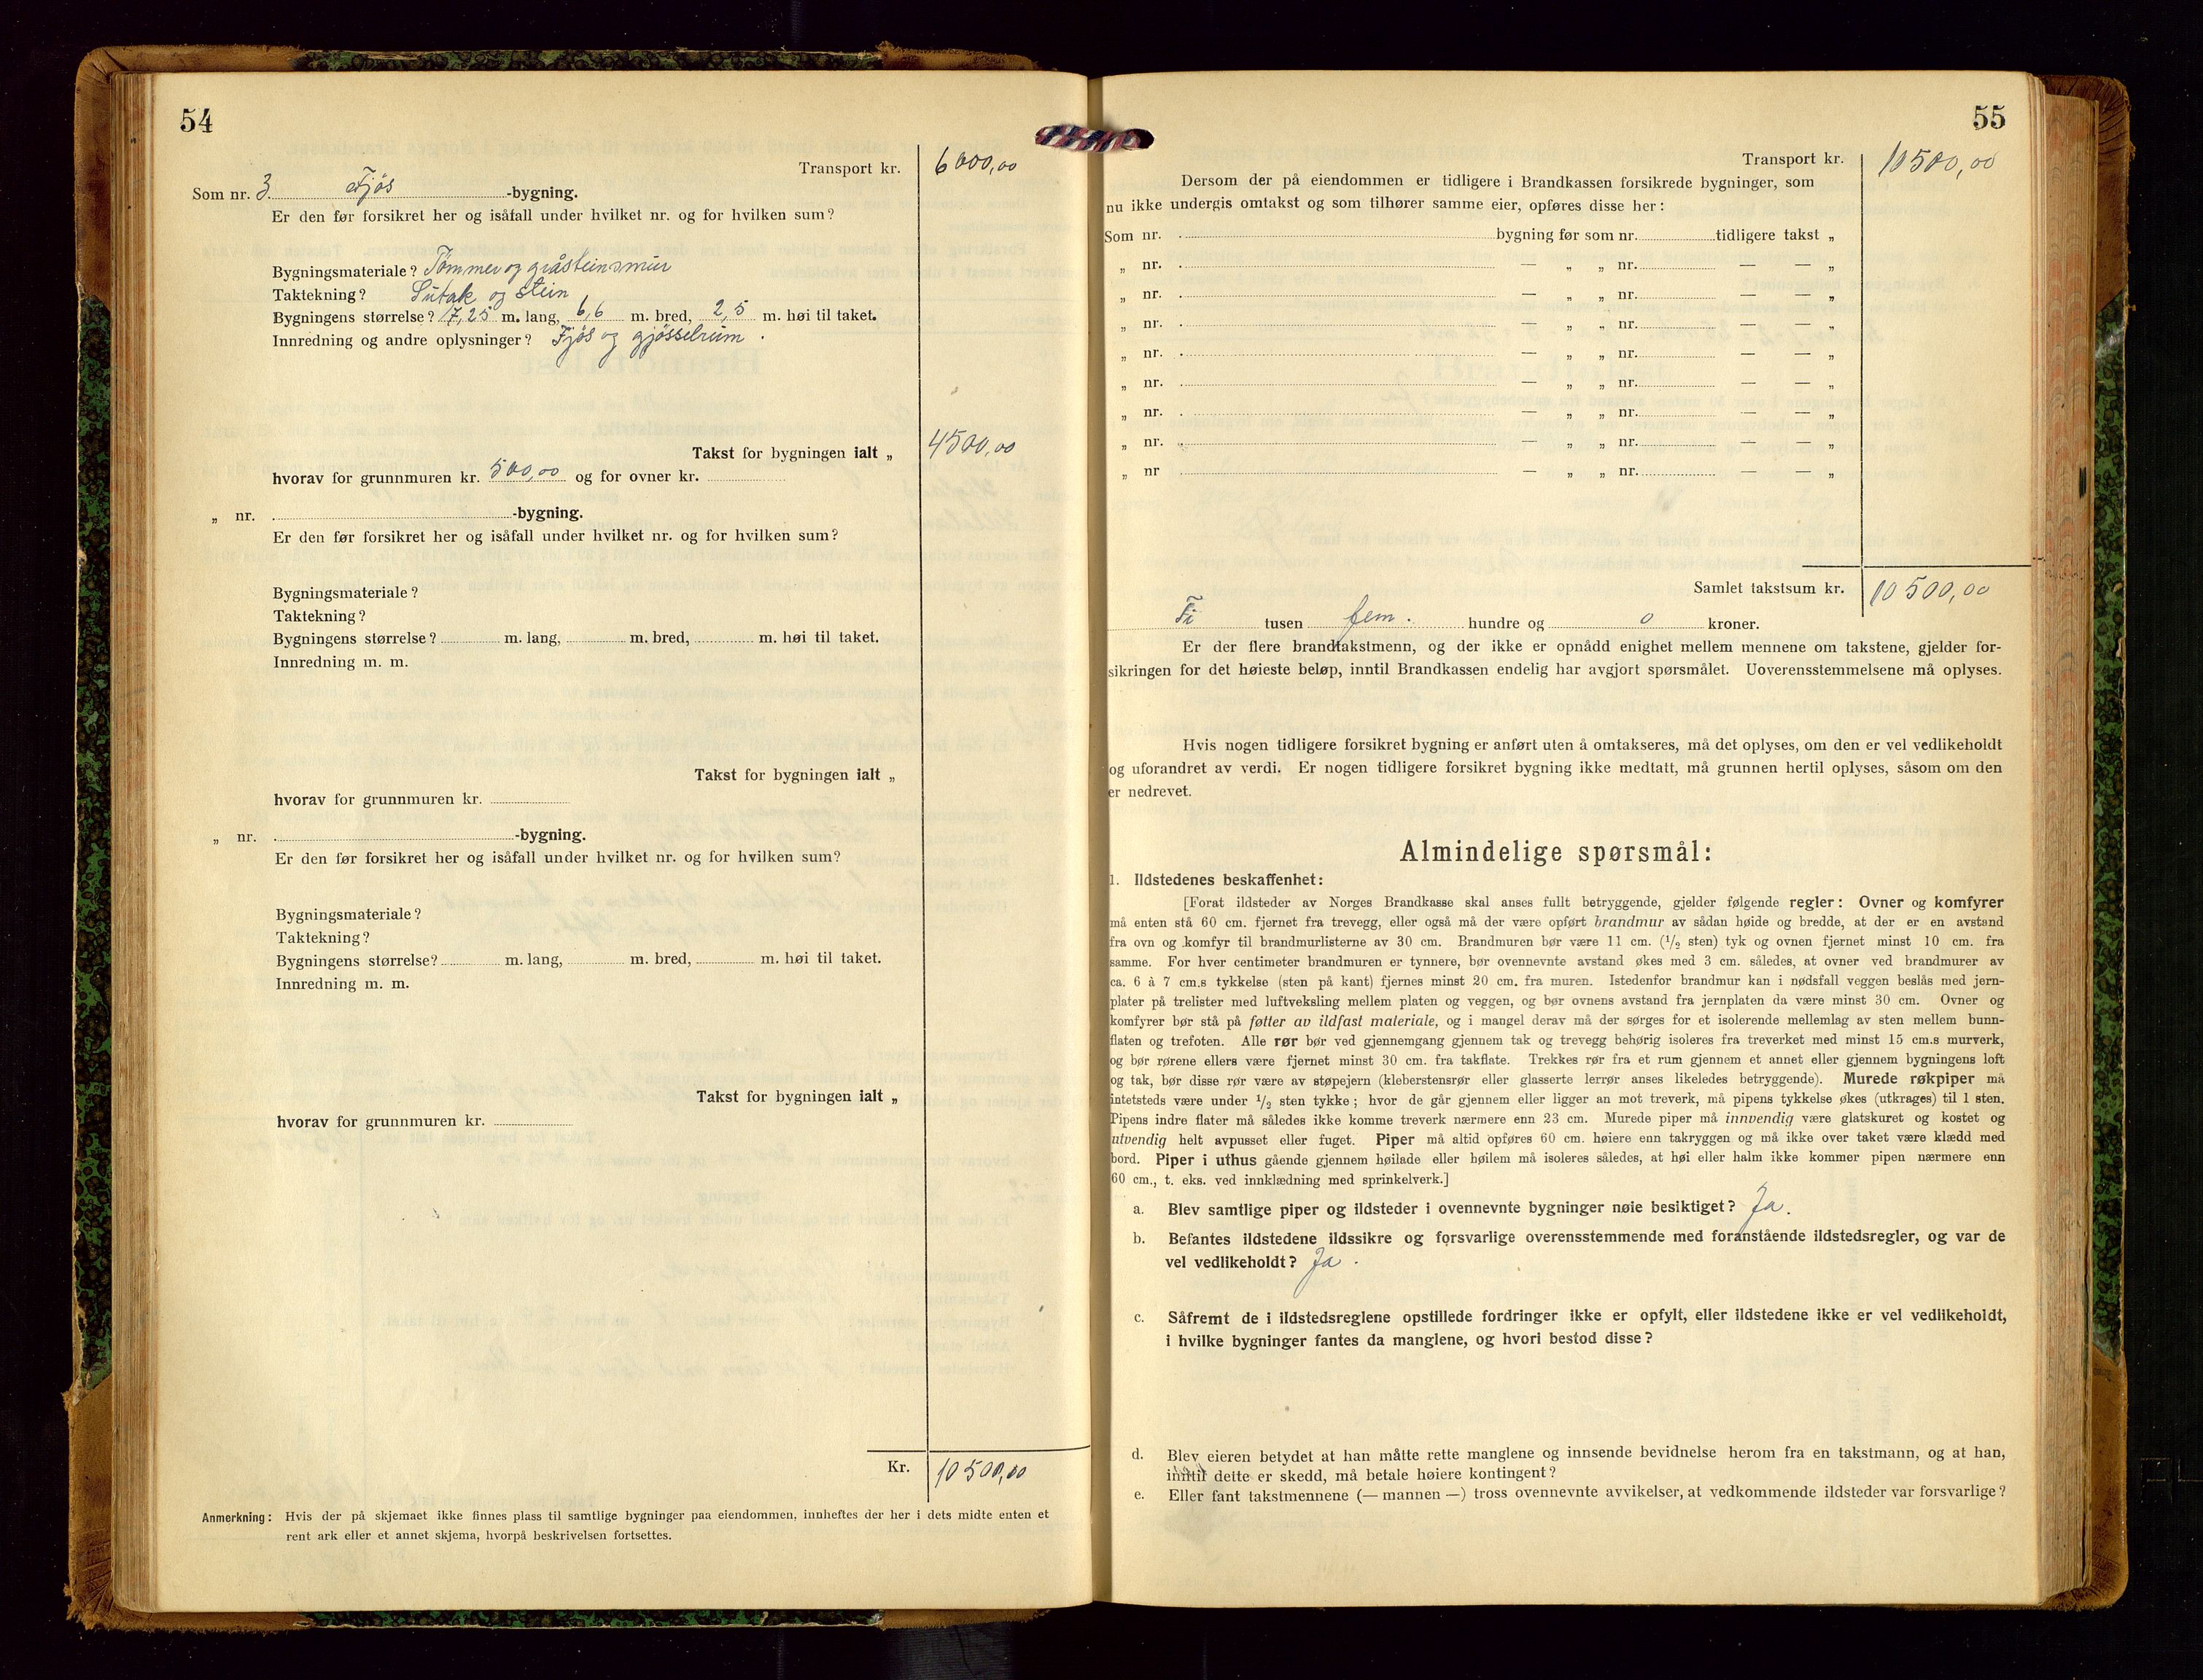 54
Transport kr. 6000,00
Som nr. 3. Fjös -bygning.
Er den før forsikret her og isåfall under hvilket nr. og for hvilken sum?
Bygningsmateriale? Tömmer og gråsteinsmur
Taktekning? Sutak og stein
Bygningens størrelse? 17,25 m. lang, 6,6 m. bred, 2,5 m. høi til taket.
Innredning og andre oplysninger? Fjös og gjösselrum.
Takst for bygningen ialt „ 4500,00
hvorav for grunnmuren kr. 500,00 og for ovner kr.
„ nr. -bygning.
Er den før forsikret her og isåfall under hvilket nr. og for hvilken sum?
Bygningsmateriale?
Taktekning?
Bygningens størrelse? m. lang, m. bred, m. høi til taket.
Innredning m. m.
Takst for bygningen ialt „
hvorav for grunnmuren kr.
„ nr. -bygning.
Er den før forsikret her og isåfall under hvilket nr. og for hvilken sum?
Bygningsmateriale?
Taktekning?
Bygningens størrelse? m. lang, m. bred, m. høi til taket.
Innredning m. m.
Takst for bygningen ialt „
hvorav for grunnmuren kr.
Kr. 10500,00
Anmerkning: Hvis der på skjemaet ikke finnes plass til samtlige bygninger paa eiendommen, innheftes der her i dets midte enten et
rent ark eller et annet skjema, hvorpå beskrivelsen fortsettes.
55
Transport kr. 10500,00
Dersom der på eiendommen er tidligere i Brandkassen forsikrede bygninger, som
nu ikke undergis omtakst og som tilhører samme eier, opføres disse her:
Som nr. bygning før som nr. tidligere takst „
„ nr. — „ „ nr. — — „
„ nr. — „ „ nr. — — „
„ nr. — „ „ nr. — — „
„ nr. — „ „ nr. — — „
„ nr. — „ „ nr. — — „
„ nr. — „ „ nr. — — „
„ nr. — „ „ nr. — — „
„ nr — „ „ nr. — — „
Samlet takstsum kr. 10500,00
Ti tusen fem. hundre og 0 kroner.
Er der flere brandtakstmenn, og der ikke er opnådd enighet mellem mennene om takstene, gjelder for-
sikringen for det høieste beløp, inntil Brandkassen endelig har avgjort spørsmålet. Uoverensstemmelsene må oplyses.
Hvis nogen tidligere forsikret bygning er anført uten å omtakseres, må det oplyses, om den er vel vedlikeholdt
og uforandret av verdi. Er nogen tidligere forsikret bygning ikke medtatt, må grunnen hertil oplyses, såsom om den
er nedrevet.
Almindelige spørsmål:
1. Ildstedenes beskaffenhet:
[Forat ildsteder av Norges Brandkasse skal anses fullt betryggende, gjelder følgende regler: Ovner og komfyrer
må enten stå 60 cm. fjernet fra trevegg, eller også må der være opført brandmur av sådan høide og bredde, at der er en avstand
fra ovn og komfyr til brandmurlisterne av 30 cm. Brandmuren bør være 11 cm. (1/2 sten) tyk og ovnen fjernet minst 10 cm. fra
samme. For hver centimeter brandmuren er tynnere, bør ovennevnte avstand økes med 3 cm. således, at ovner ved brandmurer av
ca. 6 à 7 cm.s tykkelse (sten på kant) fjernes minst 20 cm. fra muren. Istedenfor brandmur kan i nødsfall veggen beslås med jern-
plater på trelister med luftveksling mellem platen og veggen, og bør ovnens avstand fra jernplaten da være minst 30 cm. Ovner og
komfyrer bør stå på føtter av ildfast materiale, og i mangel derav må der sørges for et isolerende mellemlag av sten mellem bunn-
flaten og trefoten. Alle rør bør ved gjennemgang gjennem tak og trevegg behørig isoleres fra treverket med minst 15 cm.s murverk,
og bør rørene ellers være fjernet minst 30 cm. fra takflate. Trekkes rør fra et rum gjennem et annet eller gjennem bygningens loft
og tak, bør disse rør være av støpejern (kleberstensrør eller glasserte lerrør anses likeledes betryggende). Murede røkpiper må
intetsteds være under 1/2 sten tykke; hvor de går gjennem eller ligger an mot treverk, må pipens tykkelse økes (utkrages) til 1 sten.
Pipens indre flater må således ikke komme treverk nærmere enn 23 cm. Murede piper må innvendig være glatskuret og kostet og
utvendig helt avpusset eller fuget. Piper må altid opføres 60 cm. høiere enn takryggen og må ikke over taket være klædd med
bord. Piper i uthus gående gjennem høilade eller høilem må isoleres således, at høi eller halm ikke kommer pipen nærmere enn
60 cm., t. eks. ved innklædning med sprinkelverk.]
a. Blev samtlige piper og ildsteder i ovennevnte bygninger nøie besiktiget? Ja.
b. Befantes ildstedene ildssikre og forsvarlige overensstemmende med foranstående ildstedsregler, og var de
vel vedlikeholdt? Ja.
c. Såfremt de i ildstedsreglene opstillede fordringer ikke er opfylt, eller ildstedene ikke er vel vedlikeholdt,
i hvilke bygninger fantes da manglene, og hvori bestod disse?
d. Blev eieren betydet at han måtte rette manglene og innsende bevidnelse herom fra en takstmann, og at han,
inntil dette er skedd, må betale høiere kontingent?
e. Eller fant takstmennene (— mannen —) tross ovennevnte avvikelser, at vedkommende ildsteder var forsvarlige?